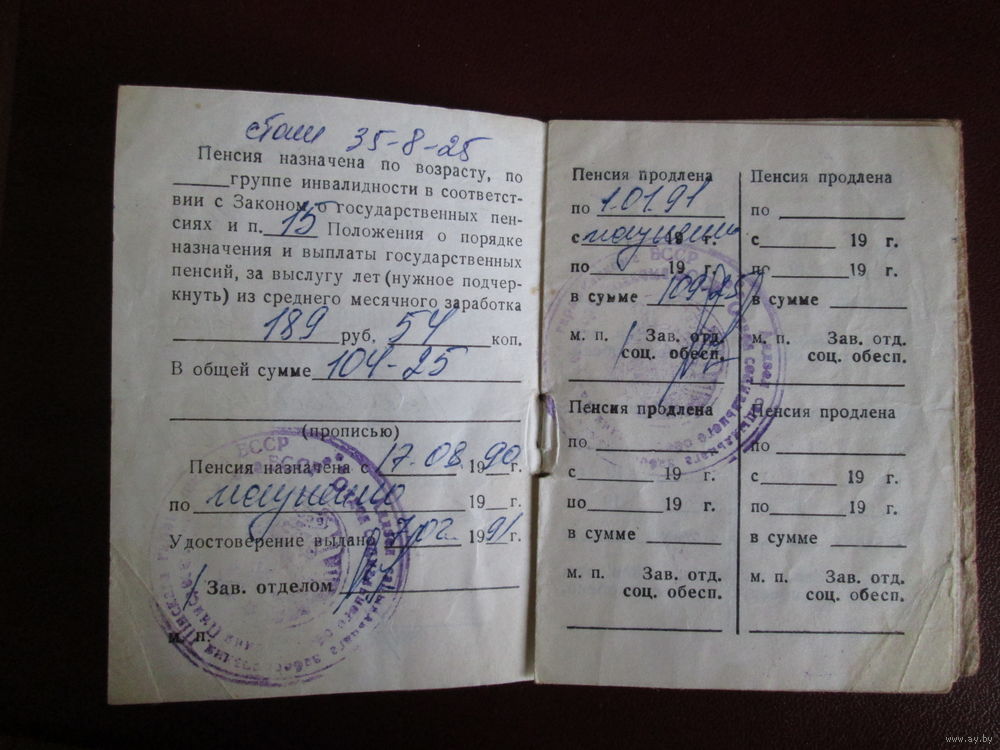 стаж 35-8-25
Пенсия назначена по возрасту, по
группе инвалидности в соответст-
вии с Законом о государственных пен-
сиях и п. 15 Положения о порядке
назначения и выплаты государственных
пенсий, за выслугу лет (нужное подчер-
кнуть) из среднего месячного заработка
189 руб. 54 коп.
В общей сумме 104-25
(прописью)
Пенсия назначена с 17.08 1990 г.
по 19 г.
Удостоверение выдано 7/02 1991 г.
Зав. отделом
м. п.
БССР
Пенсия продлена
по 1.01.91
с 19 г.
по 19 г.
в сумме 109-25
м. п. Зав. отд.
соц. обесп.
БССР
Пенсия продлена
по
с 19 г.
по 19 г.
в сумме
м. п. Зав. отд.
соц. обесп.
Пенсия продлена
по
с 19 г.
по 19 г.
в сумме
м. п. Зав. отд.
соц. обесп.
Пенсия продлена
по
с 19 г.
по 19 г.
в сумме
м. п. Зав. отд.
соц. обесп.
www.ay.by